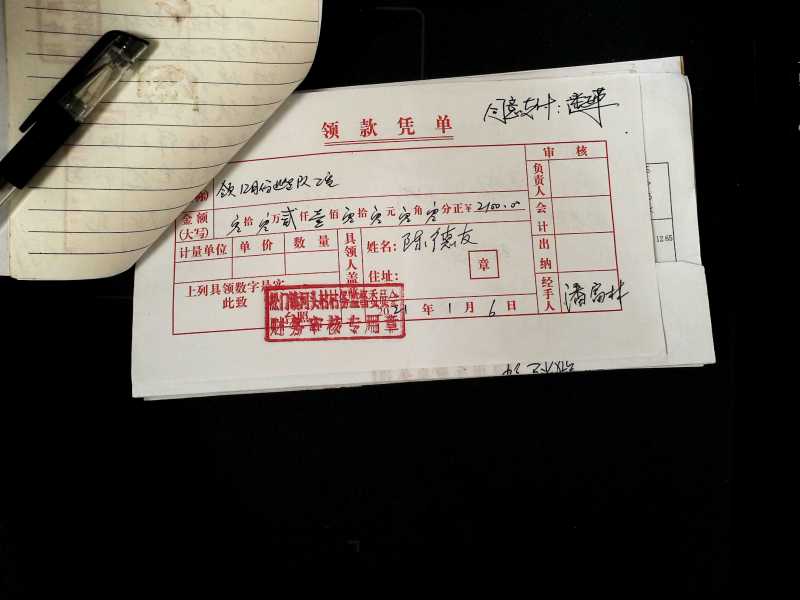 同意支付:
领款凭单
审核
领12月份 工资
负责人
金额(大写) 零拾零万贰仟壹佰零拾零元零角零分正¥2100.00
会计
计量单位 单价 数量 具领人盖章 姓名:陈德友
出纳
住址: 章
上列具领数字是实
此致
台照
2021年1月6日
经手人 潘富林
河头村村务监督委员会
财务审核专用章
12.65